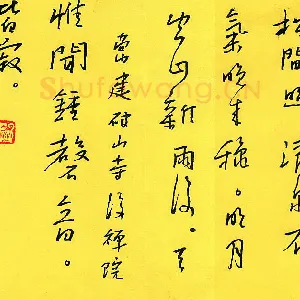 松間照清泉石
氣晚生穐。明月
空山新雨後。天
常建破山寺後禪院
惟聞鐘磬音。
皆寂。
Shufawang.CN